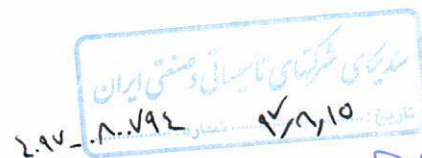 سندیکای شرکتهای تاسیساتی و صنعتی ایران
تاریخ: ۹۷٫۸٫۱۵ شماره: ۴۰۹۷-۸۰۰۷۹۴